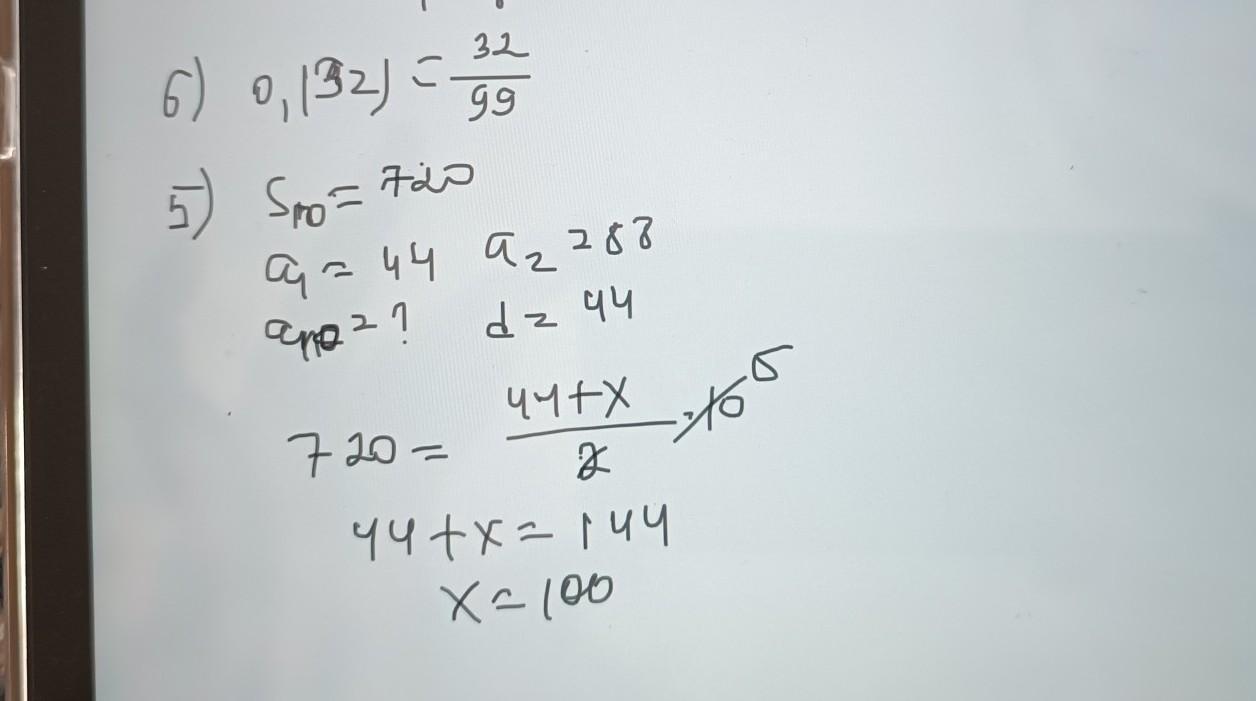 6) 0,(32) = 32/99
5) S10 = 720
a1 = 44 a2 = 88
a10 = ? d = 44
720 = 44+x/2 · 10 5
44+x = 144
x = 100